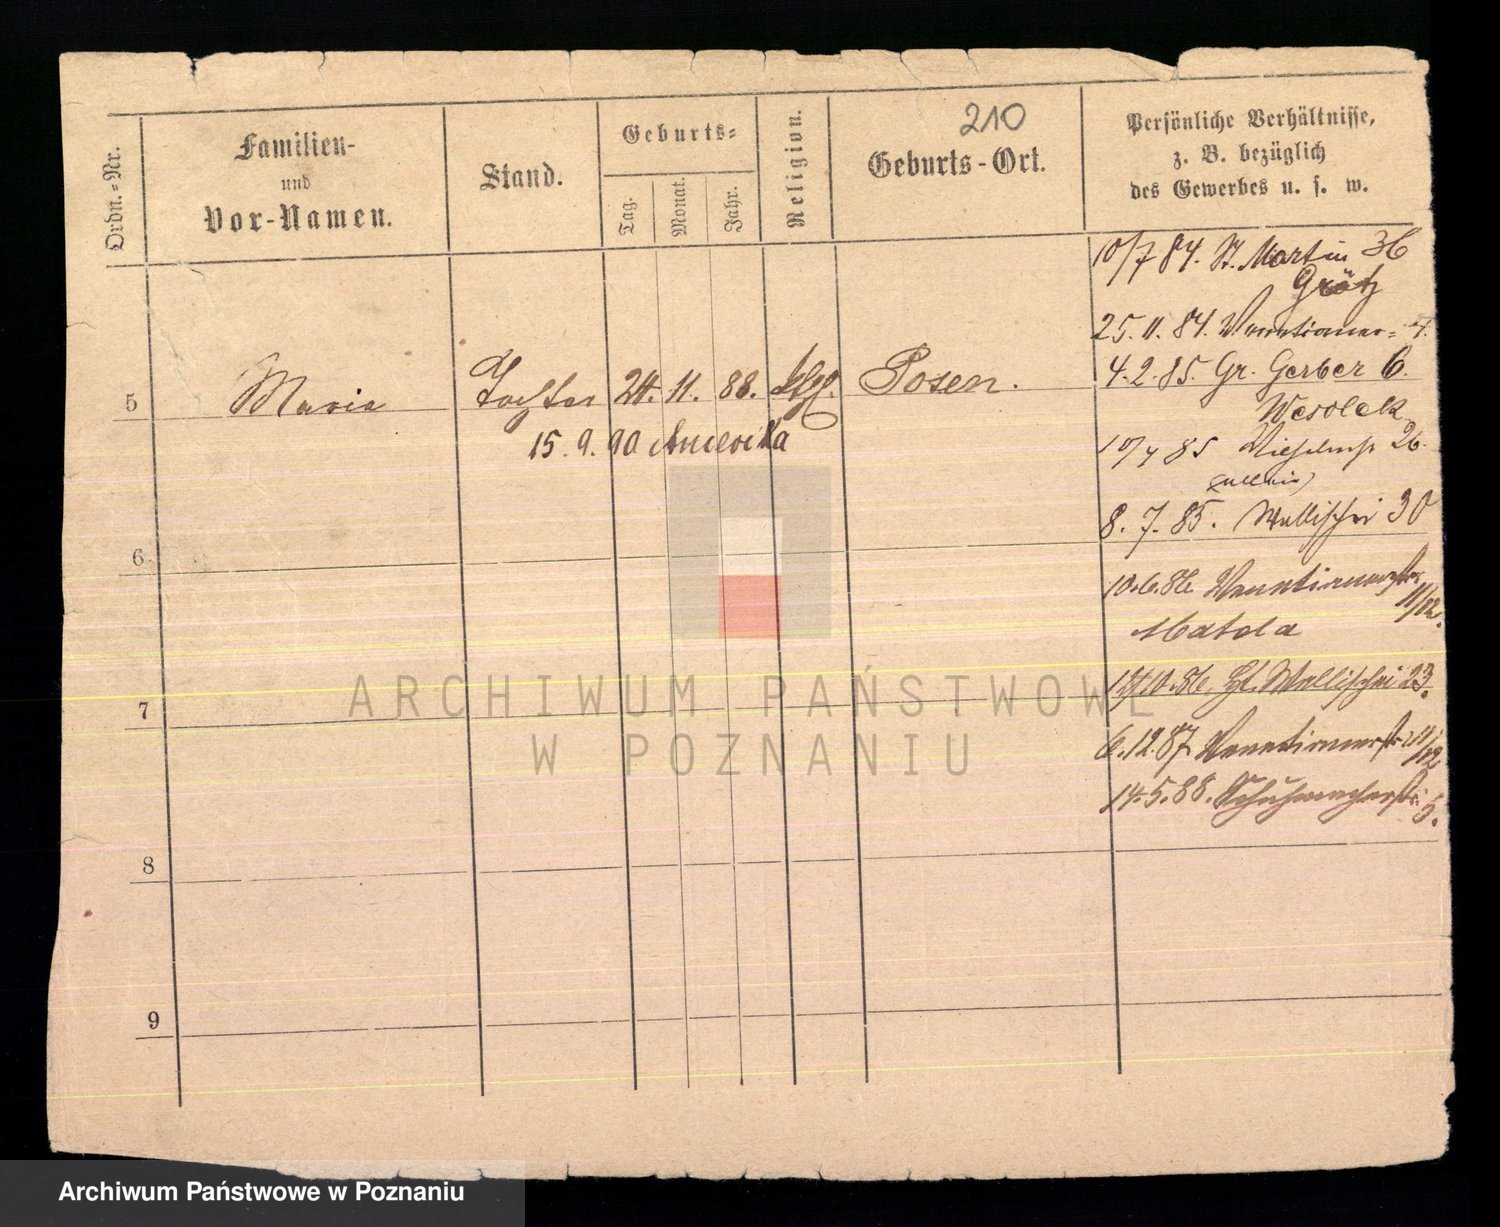 210
Ordn.-Nr.
Familien-
und
Vor-Namen.
Stand.
Geburts-
Tag.
Monat.
Jahr.
Religion.
Geburts-Ort.
Persönliche Verhältnisse,
z. B. bezüglich
des Gewerbes u. s. w.
10/7 84. St. Martin 36
Grätz
25.11.84. Venetianer- 4.
4.2.85. Gr. Gerber 6.
Wesolek
5 Maria Tochter 24. 11. 88. kth. Posen.
15.9.90 Amerika
10/4 85 26.
8.7.85. Wallischei 30
6
10.6.86 Venetianerstr. 11/12.
Matola
10.86. Wallischei 23.
7
6.12.87 Venetianerstr. 11/12
14.5.88. Schuhmacherstr. 5.
8
9
ARCHIWUM PAŃSTWOWE
W POZNANIU
Archiwum Państwowe w Poznaniu